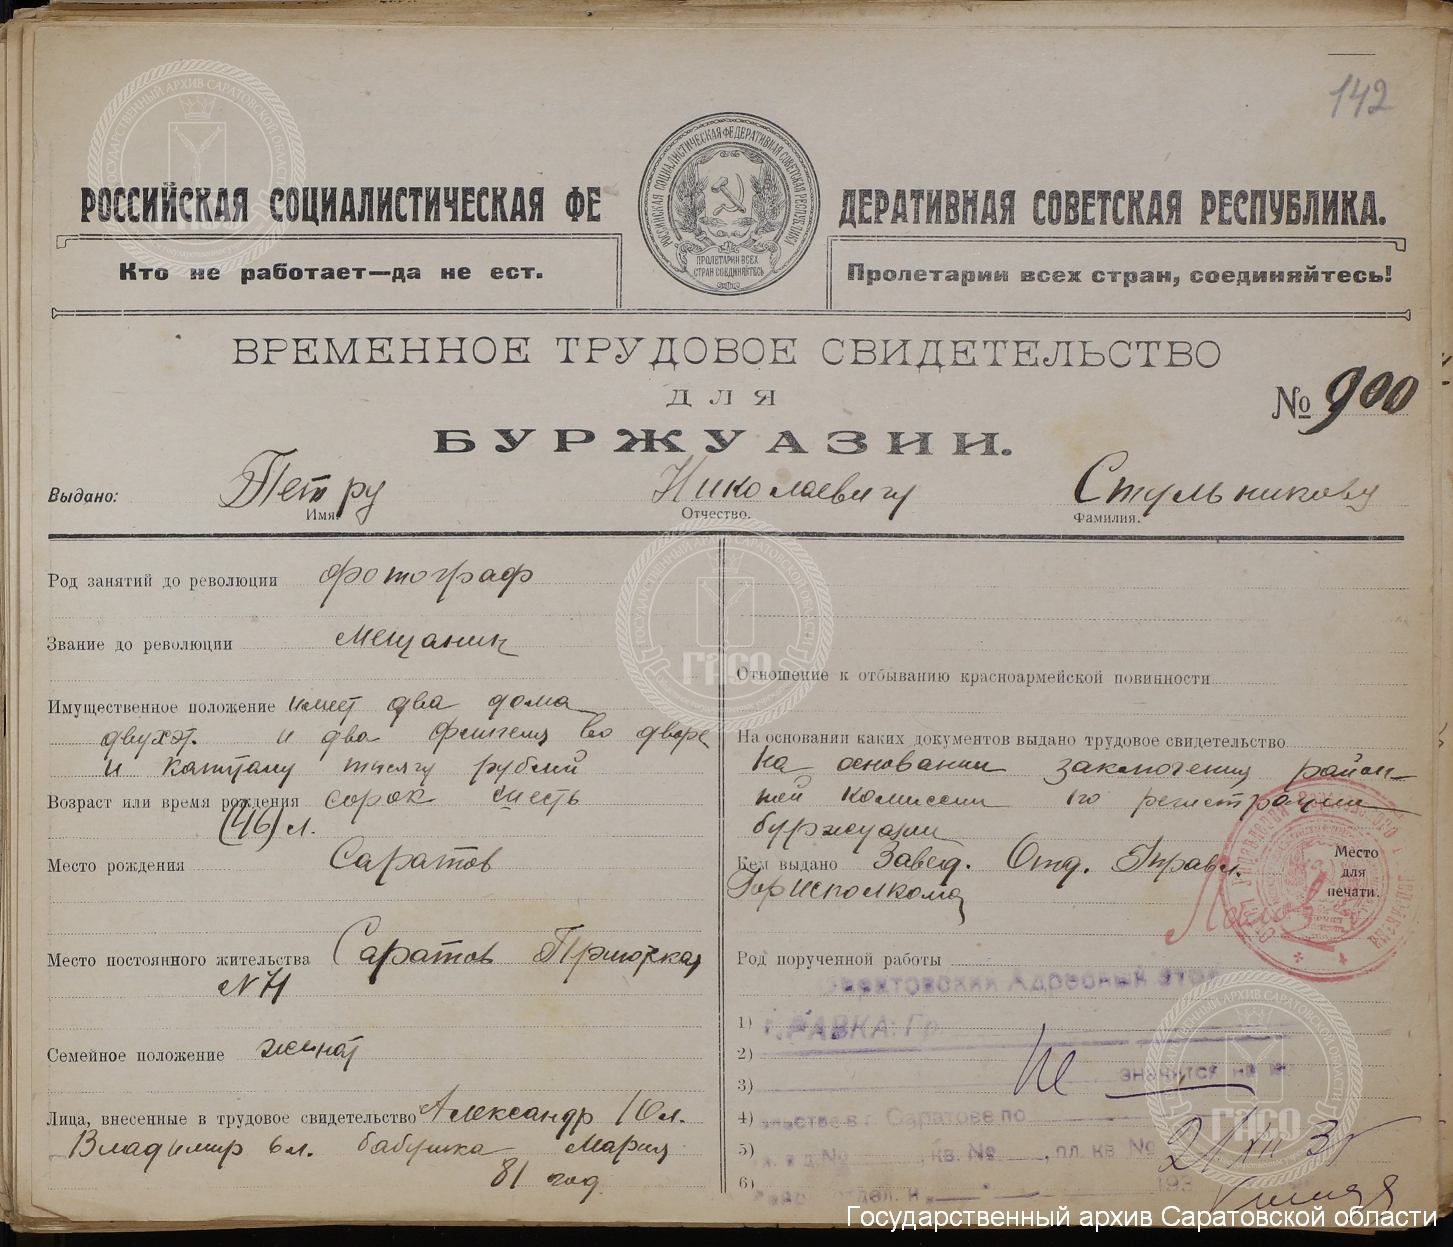 142
РОССИЙСКАЯ СОЦИАЛИСТИЧЕСКАЯ ФЕ ДЕРАТИВНАЯ СОВЕТСКАЯ РЕСПУБЛИКА.
РОССИЙСКАЯ СОЦИАЛИСТИЧЕСКАЯ ФЕДЕРАТИВНАЯ СОВЕТСКАЯ РЕСПУБЛИКА
ПРОЛЕТАРИИ ВСЕХ
СТРАН СОЕДИНЯЙТЕСЬ
Кто не работает—да не ест.
Пролетарии всех стран, соединяйтесь!
ВРЕМЕННОЕ ТРУДОВОЕ СВИДЕТЕЛЬСТВО
ДЛЯ
№ 900
БУРЖУАЗИИ.
Выдано: Петру Николаевичу Стульникову
Имя. Отчество. Фамилия.
Род занятий до революции фотограф
Звание до революции мещанин
Имущественное положение имеет два дома
двухэт. и два флигеля во дворе
и капиталу тысячу рублей
Возраст или время рождения сорок шесть
(46) л.
Место рождения Саратов
Место постоянного жительства Саратов
N 71
Семейное положение женат
Лица, внесенные в трудовое свидетельство Александр 10 л.
Владимир 6 л. бабушка Мария
81 год
Отношение к отбыванию красноармейской повинности
На основании каких документов выдано трудовое свидетельство
на основании заключения район-
ной комиссии по регистрации
буржуазии
Кем выдано Завед. Отд. Управл.
Горисполкома
Место
для
печати.
Род порученной работы
Саратовский Адресный стол
1) СПРАВКА: Гр.
2)
3) не значится на
4) в г. Саратове по
5) д. № , кв. № , пл. кв. №
6) 193
ГОСУДАРСТВЕННЫЙ АРХИВ САРАТОВСКОЙ ОБЛАСТИ
ГАСО
Государственный архив Саратовской области